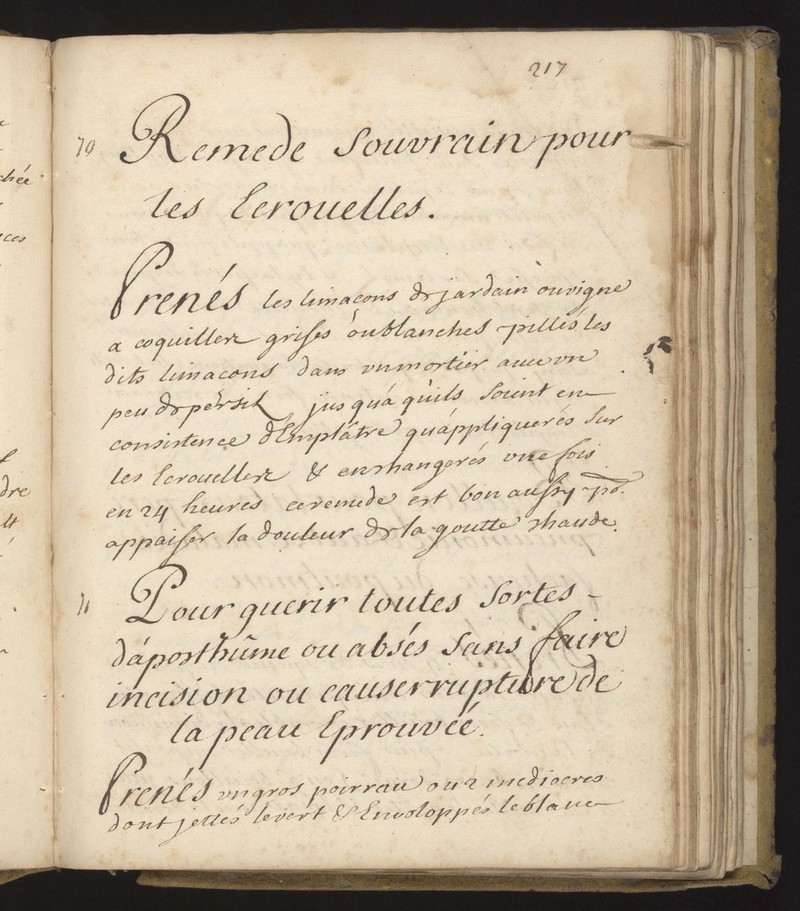 217
70 Remede Souvrain pour
les Ecrouelles.
Prenés les limacons de jardain ou vigne
a coquillez grises ou blanches pillés les
dits limacons dans un mortier avec un
peu de persil jus quá quils soint en
consistence d'Emplâtre qu'appliquerés Sur
les Ecrouellez & en changerés une fois
en 24 heures ce remede est bon aussy pr.
appaiser la douleur de la goutte chaude.
71 Pour guerir toutes Sortes
dáposthûme ou absés Sans faire
incision ou causer rupture de
la peau Eprouvéé.
Prenés un gros poirreau ou 2 mediocres
dont jettés le vert & Enveloppés le blanc
chée
ces
dre